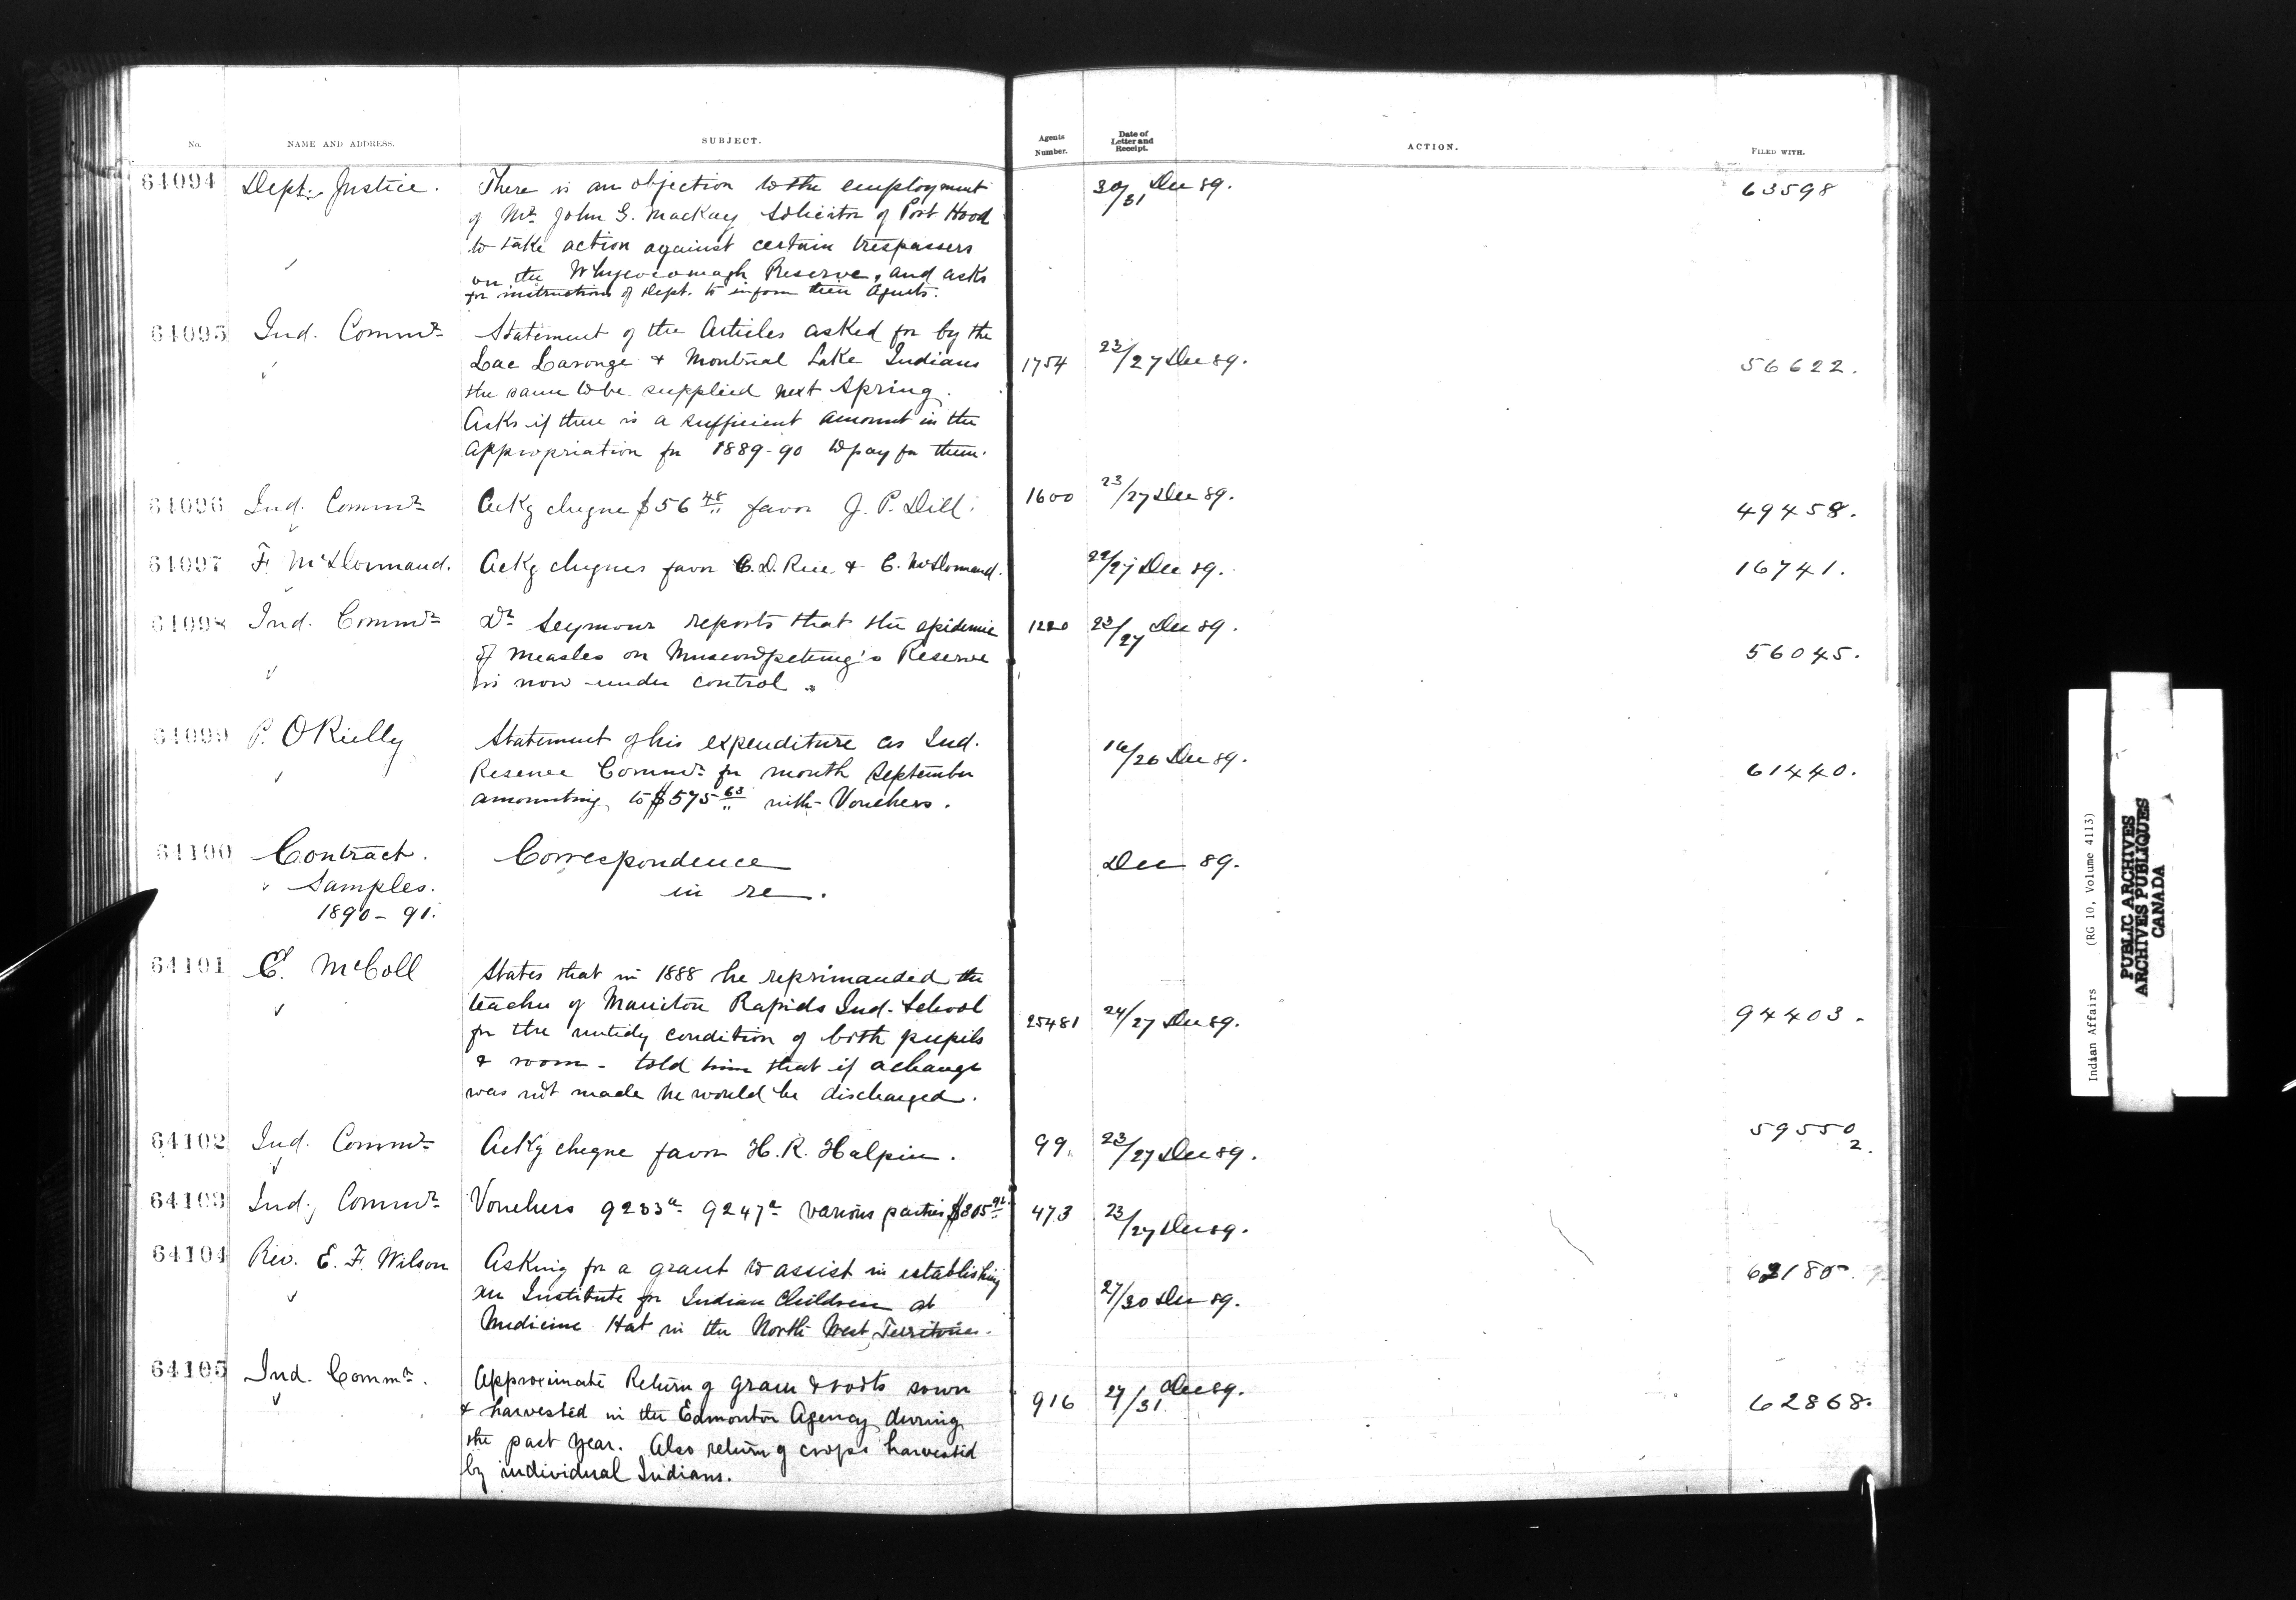 No.
NAME AND ADDRESS.
SUBJECT.
Agents
Number.
Date of
Letter and
Receipt.
ACTION.
FILED WITH.
64094 Dept. Justice. There is an objection to the employment 30/31 Dec 89. 63598
of Mr. John G. MacKay Solicitor of Port Hood
to take action against certain trespassers
on the Whycocomagh Reserve, and asks
for instructions of Dept. to inform their Agents.
64095 Ind. Commr. Statement of the Articles asked for by the
Lac Laronge & Montreal Lake Indians 1754 23/27 Dec 89. 56622.
the same to be supplied next Spring.
Asks if there is a sufficient amount in the
Appropriation for 1889-90 to pay for them.
64096 Ind. Commr. Ackg cheque $56 48 favor J. P. Dill. 1600 23/27 Dec 89. 49458.
64097 F. McDormand. Ackg cheques favor C. D. Rice & C. McDormand. 22/27 Dec 89. 16741.
64098 Ind. Commr. Dr. Seymour reports that the epidemic 1220 23/27 Dec 89.
of measles on Muscowpetung's Reserve 56045.
is now under control.
64099 P. O'Rielly Statement of his expenditure as Ind. 16/26 Dec 89.
Reserve Commr. for month September 61440.
amounting to $575 63 with Vouchers.
64100 Contract. Correspondence Dec 89.
Samples. in re.
1890-91.
64101 E. McColl States that in 1888 he reprimanded the
teacher of Manitou Rapids Ind. School 25481 24/27 Dec 89. 94403.
for the untidy condition of both pupils
& room - told him that if a change
was not made he would be discharged.
64102 Ind. Commr. Ackg cheque favor H. R. Halpin. 99. 23/27 Dec 89. 59550
2.
64103 Ind. Commr. Vouchers 9233a 9247a various parties $305 92 473 23/27 Dec 89.
64104 Rev. E. F. Wilson Asking for a grant to assist in establishing
an Institute for Indian Children at 27/30 Dec 89.
Medicine Hat in the North West Territories.
64105 Ind. Commr. Approximate Return of grain & roots sown 916 27/31 Dec 89. 62868.
& harvested in the Edmonton Agency during
the past year. Also return of crops harvested
by individual Indians.
Indian Affairs (RG 10, Volume 4113)
PUBLIC ARCHIVES
ARCHIVES PUBLIQUES
CANADA